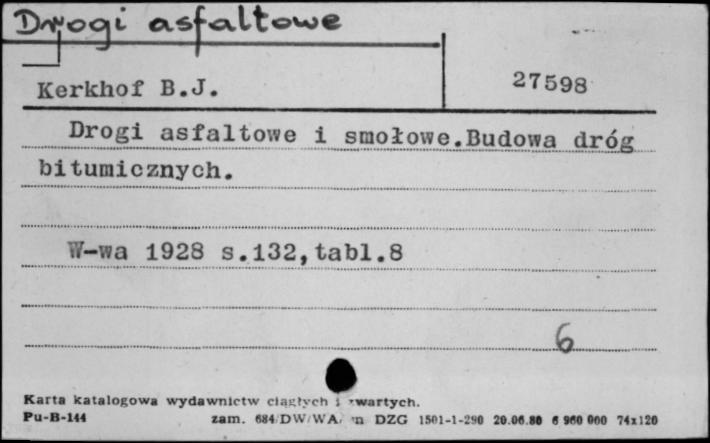 Drogi asfaltowe
Kerkhof B.J.
27598
Drogi asfaltowe i smołowe.Budowa dróg
bitumicznych.
W-wa 1928 s.132,tabl.8
6
Karta katalogowa wydawnictw ciągłych i zwartych.
Pu-B-144 zam. 684/DW/WA/ DZG 1501-1-290 20.06.80 6 960 000 74x120